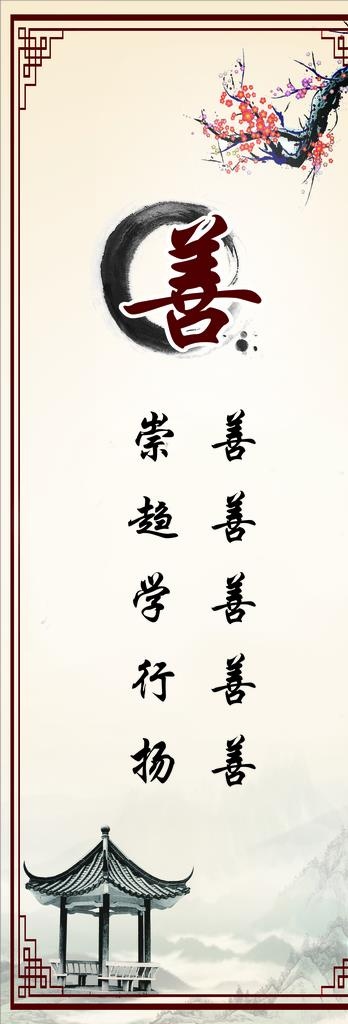 善
崇善
趋善
学善
行善
扬善